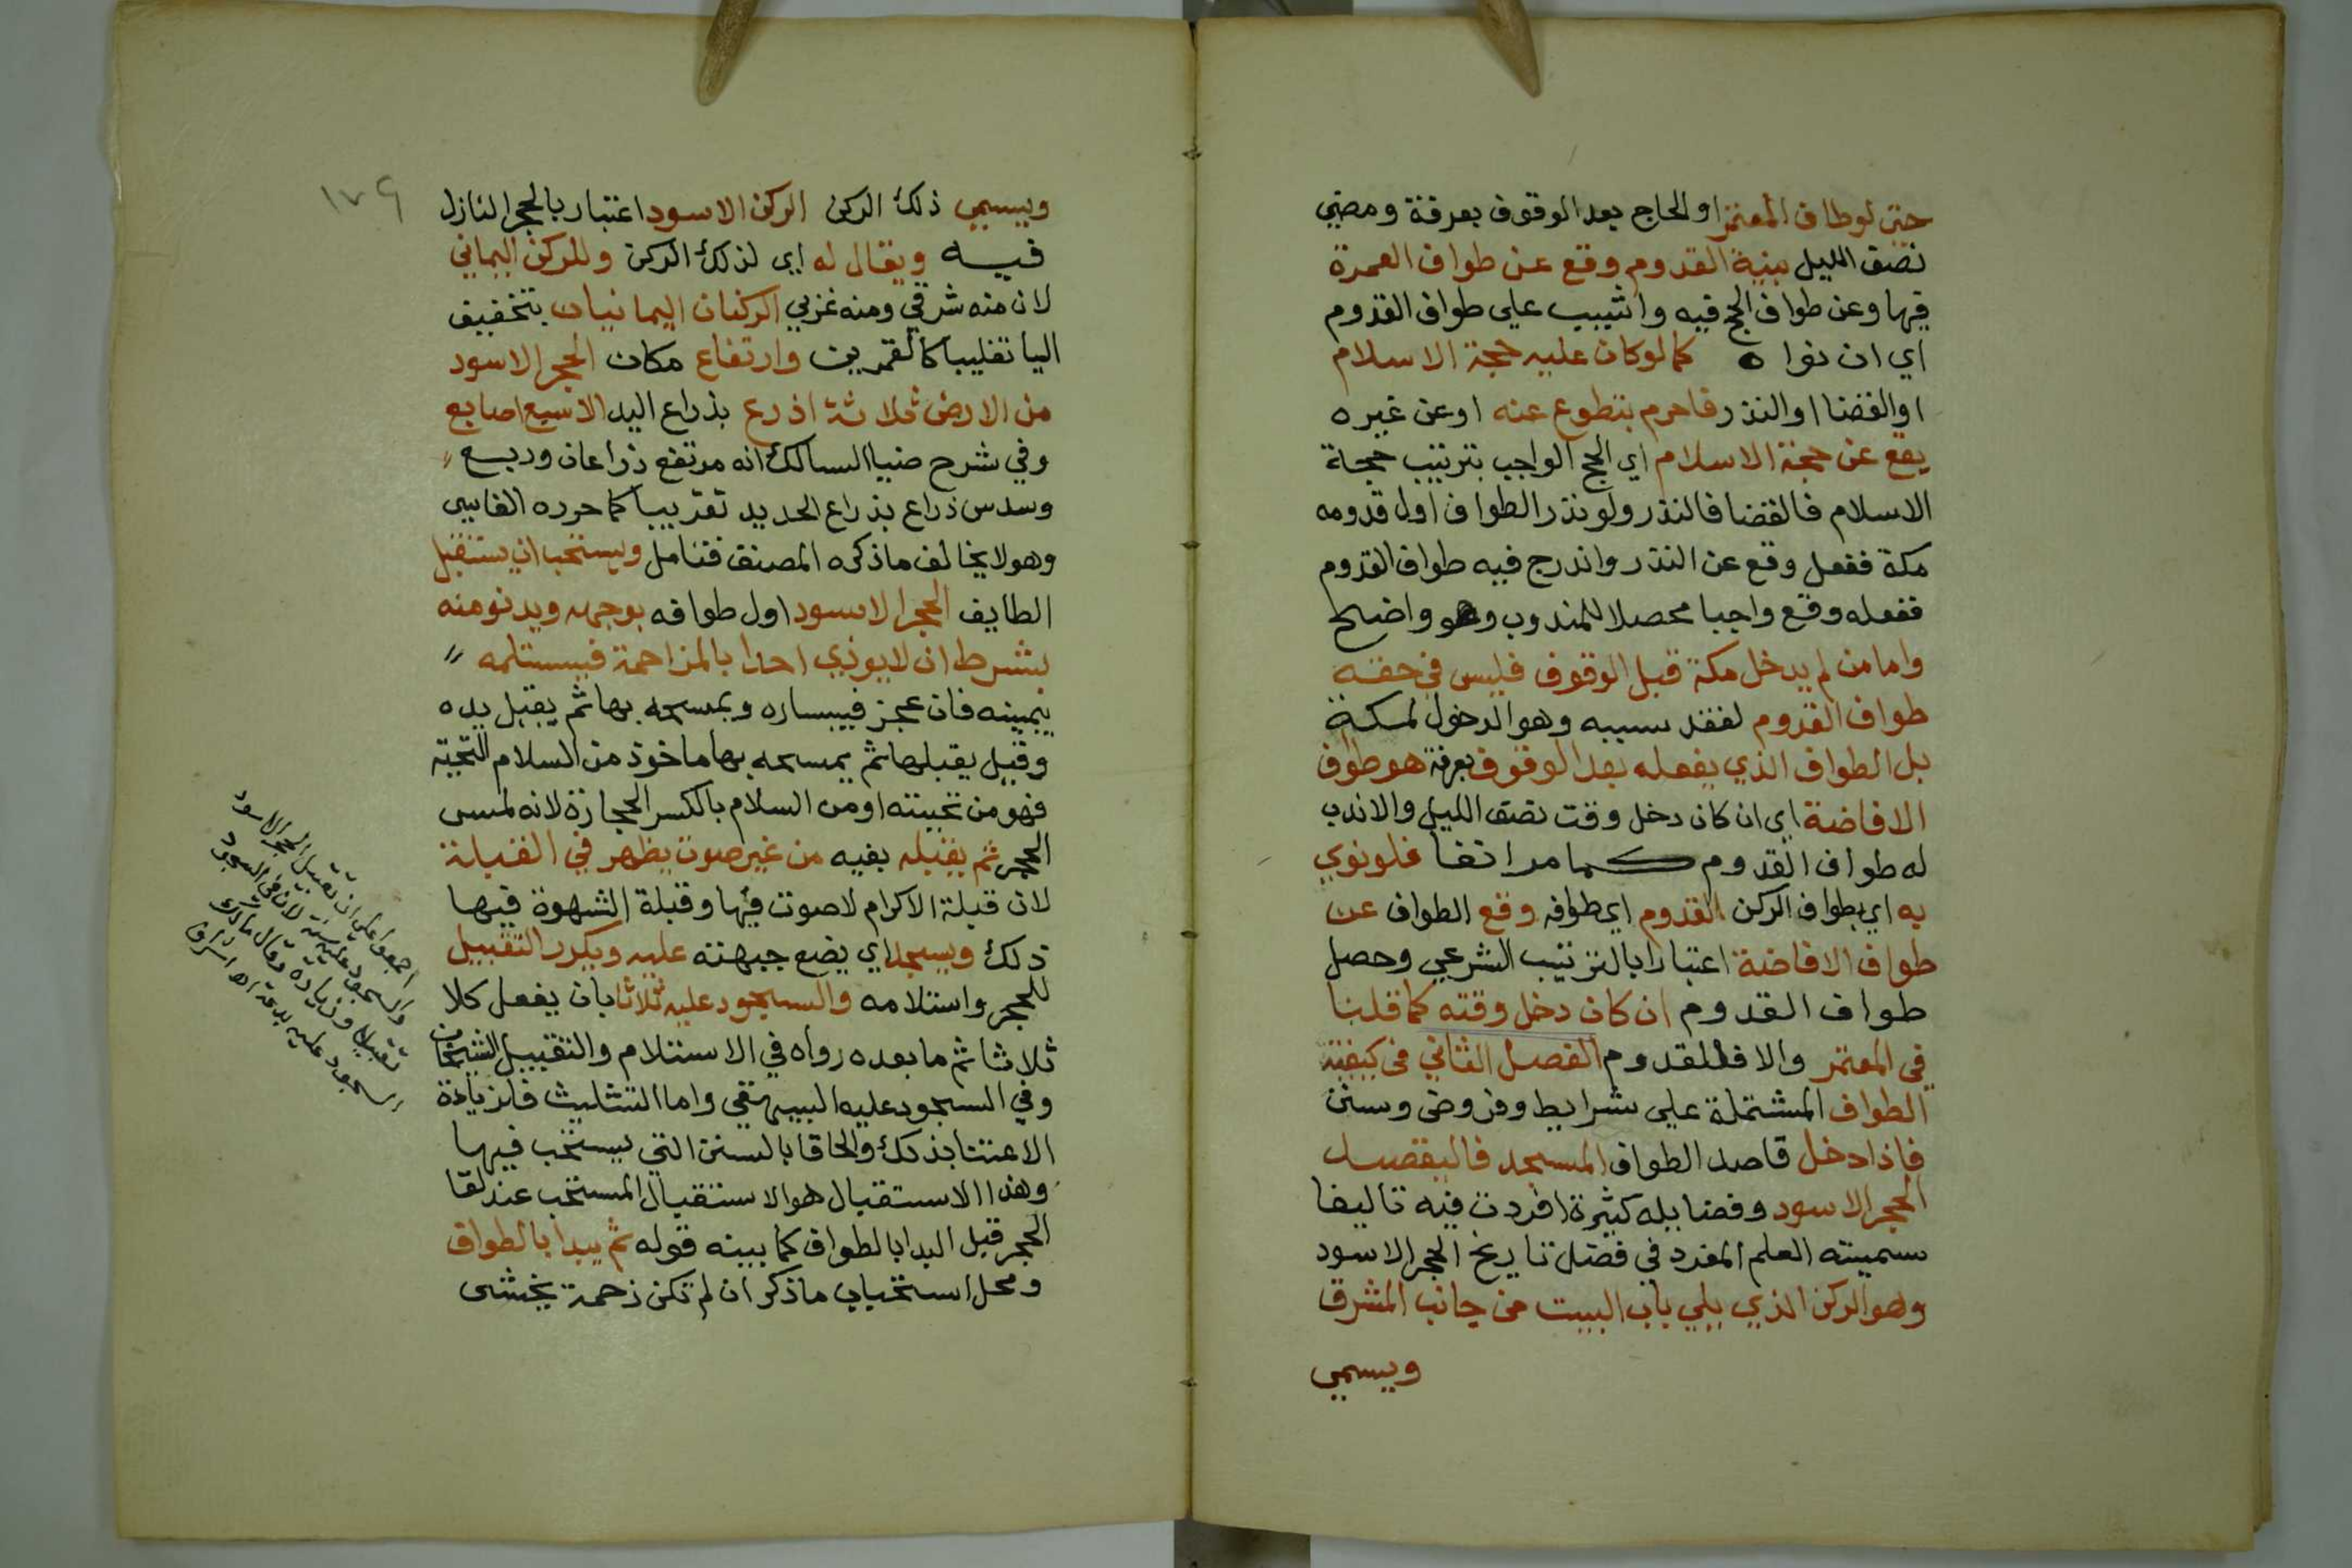 حتى لوطاف المعتمر او الحاج بعد الوقوف بعرفة ومضي
نصف الليل بنية القدوم وقع عن طواف العمرة
فيها وعن طواف الحج فيه واثيب على طواف القدوم
اي ان نواه كما لو كان عليه حجة الاسلام
او القضا او النذر فاحرم بتطوع عنه او عن غيره
يقع عن حجة الاسلام اي الحج الواجب بترتيب حجة
الاسلام فالقضا فالنذر ولو نذر الطواف اول قدومه
مكة ففعل وقع عن النذر واندرج فيه طواف القدوم
ففعله وقع واجبا محصلا للمندوب وهو واضح
واما من لم يدخل مكة قبل الوقوف فليس في حقه
طواف القدوم لفقد سببه وهو الدخول لمكة
بل الطواف الذي يفعله بعد الوقوف بعرفة هو طواف
الافاضة اي ان كان دخل وقت نصف الليل والاندب
له طواف القدوم كما مر انفا فلو نوي
به اي بطواف الركن القدوم اي طوافه وقع الطواف عن
طواف الافاضة اعتبارا بالترتيب الشرعي وحصل
طواف القدوم ان كان دخل وقته كما قلنا
في المعتمر والا فللقدوم الفصل الثاني في كيفية
الطواف المشتملة علي شرايط وفروض وسنن
فاذا دخل قاصد الطواف المسجد فاليقصد
الحجر الاسود وفضايله كثيرة افردت فيه تاليفا
سميته العلم المفرد في فضل تاريخ الحجر الاسود
وهو الركن الذي يلي باب البيت من جانب المشرق
ويسمي
١٧٩
ويسمي ذلك الركن الركن الاسود اعتبار بالحجر النازل
فيه ويقال له اي لذلك الركن وللركن اليماني
لان منه شرقي ومنه غربي الركنان اليمانيان بتخفيف
اليا تغليبا كالقمرين وارتفاع مكان الحجر الاسود
من الارض ثلاثة اذرع بذراع اليد الاسبع اصابع
وفي شرح ضيا السالك انه مرتفع ذراعان وربع
وسدس ذراع بذراع الحديد تقريبا كما حرره الفاسي
وهو لا يخالف ما ذكره المصنف فتامل ويستحب ان يستقبل
الطايف الحجر الاسود اول طوافه بوجهه ويدنو منه
بشرط ان لا يوذي احدا بالمزاحمة فيستلمه
بيمينه فان عجز فبيساره ويمسحه بها ثم يقبل يده
وقيل يقبلها ثم يمسحه بها ماخوذ من السلام التحية
فهو من تحيته او من السلام بالكسر الحجارة لانه لمس
الحجر ثم يقبله بفيه من غير صوت يظهر في القبلة
لان قبلة الاكرام لا صوت فيها وقبلة الشهوة فيها
ذلك ويسجد اي يضع جبهته عليه ويكرر التقبيل
للحجر واستلامه والسجود عليه ثلاثا بان يفعل كلا
ثلاثا ثم ما بعده رواه في الاستلام والتقبيل الشيخان
وفي السجود عليه البيهقي واما التثليث فلزيادة
الاعتنا بذلك والحاقا بالسنن التي يستحب فيها
وهذا الاستقبال هو الاستقبال المستحب عند لقا
الحجر قبل البدا بالطواف كما بينه قوله ثم يبدا بالطواف
ومحل استحباب ما ذكر ان لم تكن زحمة يخشى
اجمعوا على ان تقبيل الحجر الاسود
والسجود عليه سنة لان في السجود
تقبيلا وزيادة وقال مالك
السجود عليه بدعة اه